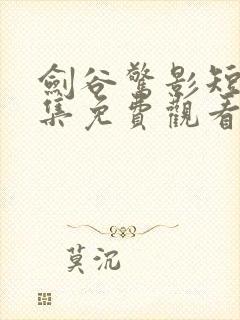 劍谷驚影短
集免費觀看
莫沉